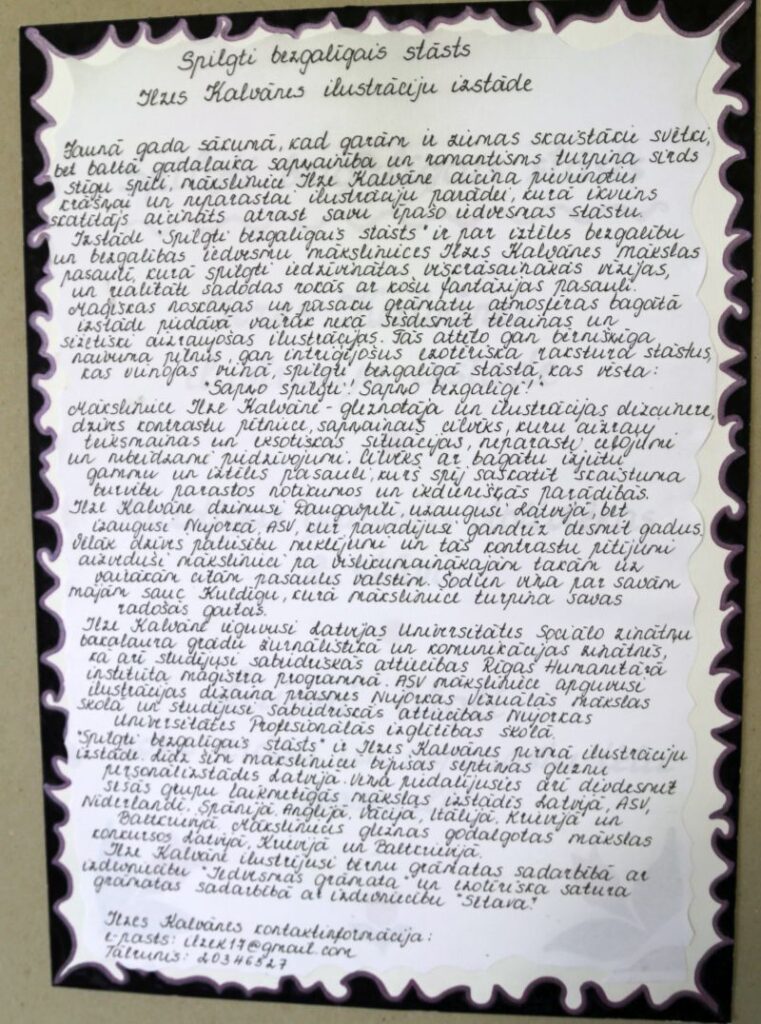 Spilgti bezgalīgais stāsts
Ilzes Kalvānes ilustrāciju izstāde
Jaunā gada sākumā, kad garām ir ziemas skaistākie svētki,
bet baltā gadalaika sapņainība un romantisms turpina sirds
stīgu spēli, māksliniece Ilze Kalvāne aicina pievienoties
krāšņai un neparastai ilustrāciju parādei, kurā ikviens
skatītājs aicināts atrast savu īpašo iedvesmas stāstu.
Izstāde "Spilgti bezgalīgais stāsts" ir par iztēles bezgalību
un bezgalības iedvesmu mākslinieces Ilzes Kalvānes mākslas
pasaulē, kurā spilgti iedzīvinātas viskrāsainākās vīzijas,
un realitāte sadodas rokās ar košu fantāzijas pasauli.
Maģiskas noskaņas un pasaku grāmatu atmosfēras bagātā
izstāde piedāvā vairāk nekā sešdesmit tēlainas un
sižetiski aizraujošas ilustrācijas. Tās attēlo gan bērnišķīga
naivuma pilnus, gan intriģējošus ezotēriska rakstura stāstus,
kas vienojas vienā, spilgti bezgalīgā stāstā, kas vēsta:
"Sapņo spilgti! Sapņo bezgalīgi!"
Māksliniece Ilze Kalvāne - gleznotāja un ilustrācijas dizainere,
dzīves kontrastu pētniece, sapņainais cilvēks, kuru aizrauj
teiksmainas un eksotiskas situācijas, neparasti ceļojumi
un nebeidzami piedzīvojumi. Cilvēks ar bagātu izjūtu
gammu un iztēles pasauli, kurš spēj saskatīt skaistuma
burvību parastos notikumos un ikdienišķās parādībās.
Ilze Kalvāne dzimusi Daugavpilī, uzaugusi Latvijā, bet
izaugusi Ņujorkā, ASV, kur pavadījusi gandrīz desmit gadus.
Vēlāk dzīves patiesību meklējumi un tās kontrastu pētījumi
aizveduši mākslinieci pa vislīkumainākajām takām uz
vairākām citām pasaules valstīm. Šodien viņa par savām
mājām sauc Kuldīgu, kurā māksliniece turpina savas
radošās gaitas.
Ilze Kalvāne ieguvusi Latvijas Universitātes Sociālo zinātņu
bakalaura grādu žurnālistikā un komunikācijas zinātnēs,
kā arī studējusi sabiedriskās attiecības Rīgas Humanitārā
institūta maģistra programmā. ASV māksliniece apguvusi
ilustrācijas dizaina prasmes Ņujorkas Vizuālās mākslas
skolā un studējusi sabiedriskās attiecības Ņujorkas
Universitātes Profesionālās izglītības skolā.
"Spilgti bezgalīgais stāsts" ir Ilzes Kalvānes pirmā ilustrāciju
izstāde. Līdz šim māksliniecei bijušas septiņas gleznu
personālizstādes Latvijā. Viņa piedalījusies arī divdesmit
sešās grupu laikmetīgās mākslas izstādēs Latvijā, ASV,
Nīderlandē, Spānijā, Anglijā, Vācijā, Itālijā, Krievijā un
Baltkrievijā. Mākslinieces gleznas godalgotas mākslas
konkursos Latvijā, Krievijā un Baltkrievijā.
Ilze Kalvāne ilustrējusi bērnu grāmatas sadarbībā ar
izdevniecību "Iedvesmas grāmata" un ezotēriska satura
grāmatas sadarbībā ar izdevniecību "Sētava".
Ilzes Kalvānes kontaktinformācija:
e-pasts: ilzek17@gmail.com
Tālrunis: 20346527